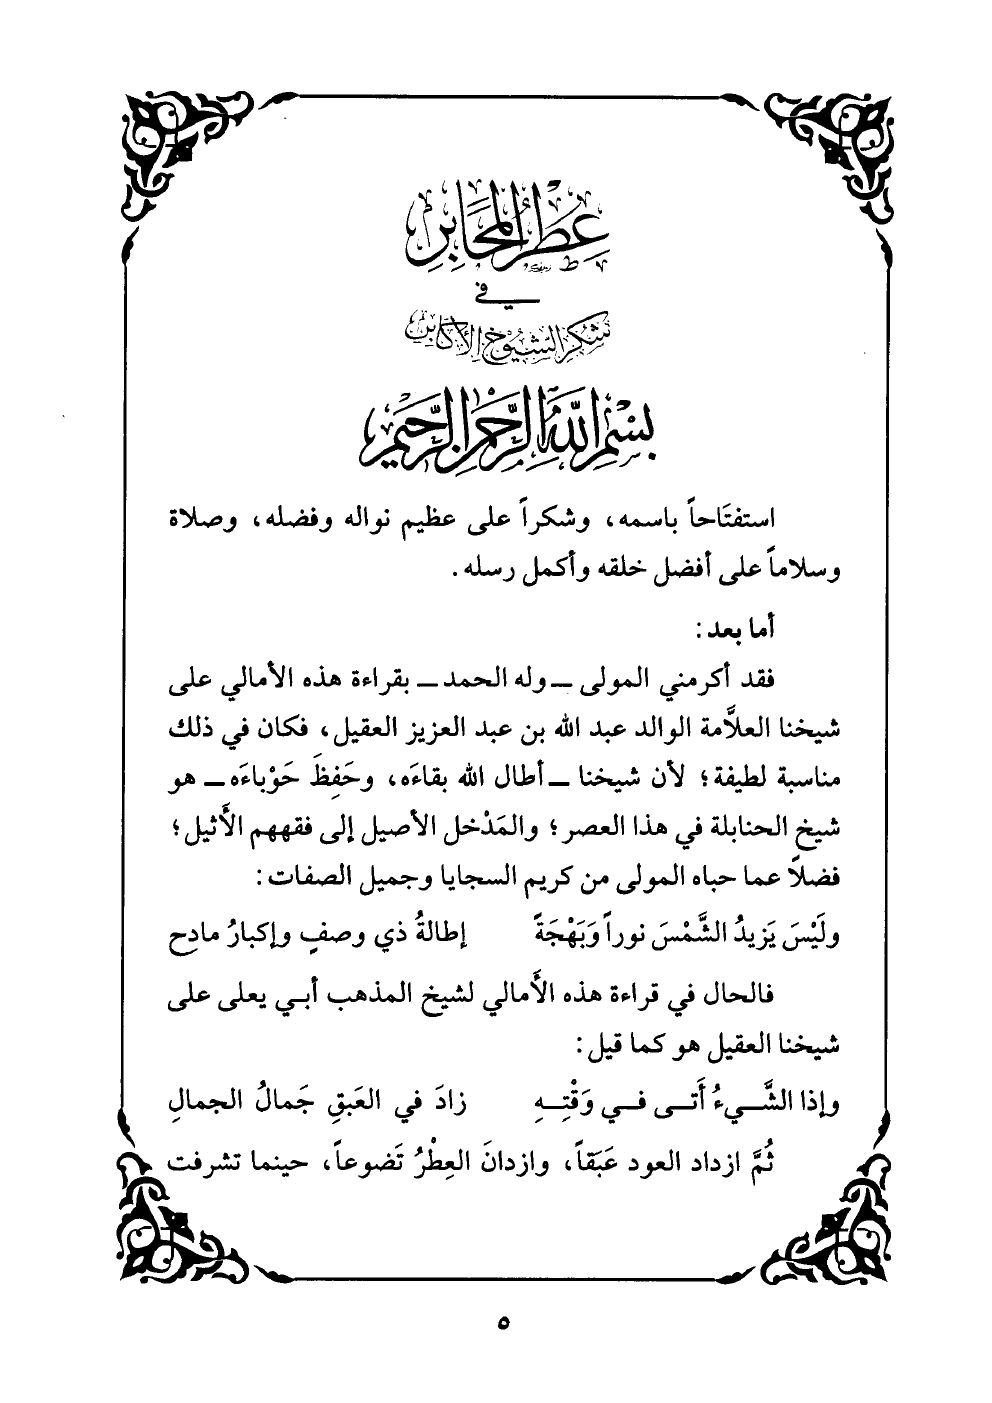 عِطْرُ المَحَابِرِ
في
شُكرِ الشيُوخِ الأكَابِرِ
بِسْمِ اللَّهِ الرَّحْمَنِ الرَّحِيمِ
استفتَاحاً باسمه، وشكراً على عظيم نواله وفضله، وصلاة
وسلاماً على أفضل خلقه وأكمل رسله.
أما بعد:
فقد أكرمني المولى ــ وله الحمد ــ بقراءة هذه الأمالي على
شيخنا العلاَّمة الوالد عبد الله بن عبد العزيز العقيل، فكان في ذلك
مناسبة لطيفة؛ لأن شيخنا ــ أطال الله بقاءَه، وحَفِظَ حَوْباءَه ــ هو
شيخ الحنابلة في هذا العصر؛ والمَدْخل الأصيل إلى فقههم الأَثيل؛
فضلاً عما حباه المولى من كريم السجايا وجميل الصفات:
ولَيْسَ يَزيدُ الشَّمْسَ نوراً وَبَهْجَةً إطالةُ ذي وصفٍ وإكبارُ مادِح
فالحال في قراءة هذه الأَمالي لشيخ المذهب أبي يعلى على
شيخنا العقيل هو كما قيل:
وإذا الشَّـيءُ أَتـى فـي وَقْتِـهِ زادَ في العَبقِ جَمالُ الجمالِ
ثُمَّ ازداد العود عَبَقاً، وازدانَ العِطْرُ تَضوعاً، حينما تشرفت
٥